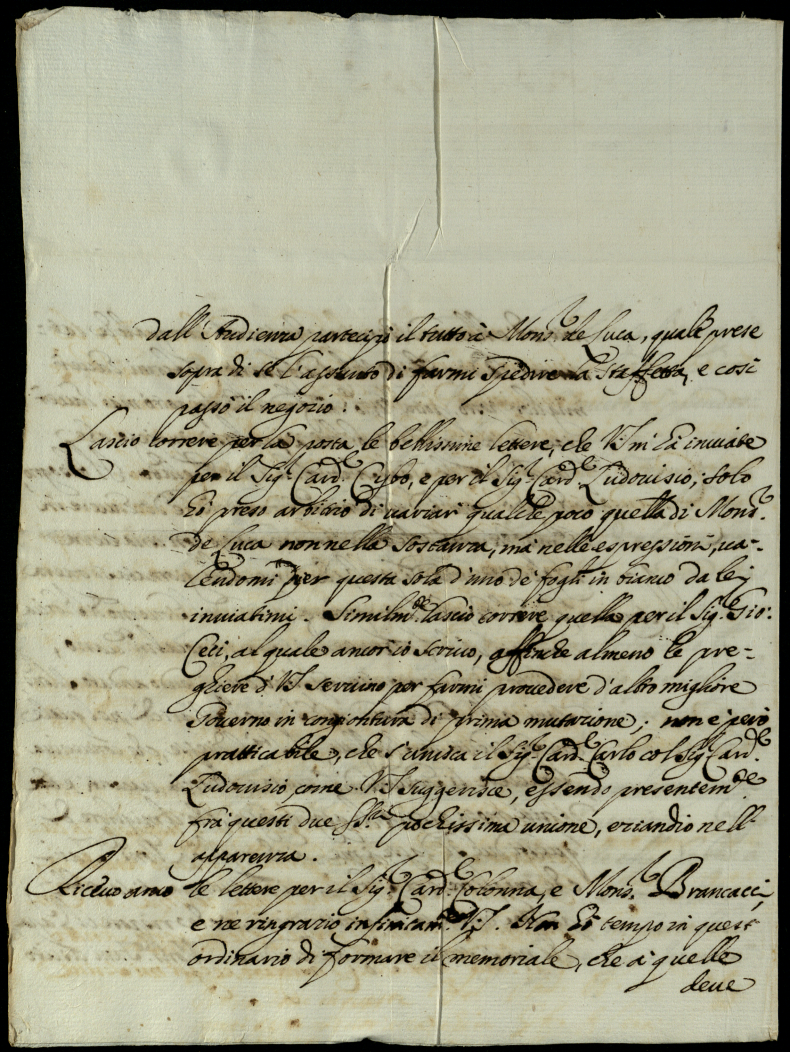 dall'Audienza partecipò il tutto à Mons.r de Luca, quale prese
sopra di se l'assunto di farmi spedire la staffetta, e così
passò il negozio.
Lascio correre per la posta le bellissime lettere, che V.S. m'hà inviate
per il Sig.r Card.le Cybo, e per il Sig.r Card.le Ludovisio; solo
hò preso arbitrio di variar qualche poco quella di Mons.r
de Luca non nella sostanza, mà nelle espressioni, va-
lendomi per questa sola d'uno de fogli in bianco da lei
inviatimi. Similm.te lascio correre quella per il Sig.r Gio:
Ceci, al quale ancor io scrivo, affinche almeno le pre-
ghiere di V.S. servino per farmi provedere d'altro migliore
Governo in congiontura di prima mutazione; non è però
pratticabile, che s'unisca il Sig.r Card.le Carlo col Sig.r Card.le
Ludovisio come V.S. suggerisce, essendo presentem.te
frà questi due SS.ri pochissima unione, eziandio nell'
apparenza.
Ricevo anco le lettere per il Sig.r Card.le Colonna, e Mons.r Brancacci,
e ne ringrazio infinitam.te V.S. Non hò tempo in quest'
ordinario di formare il memoriale, che à quelle
deve